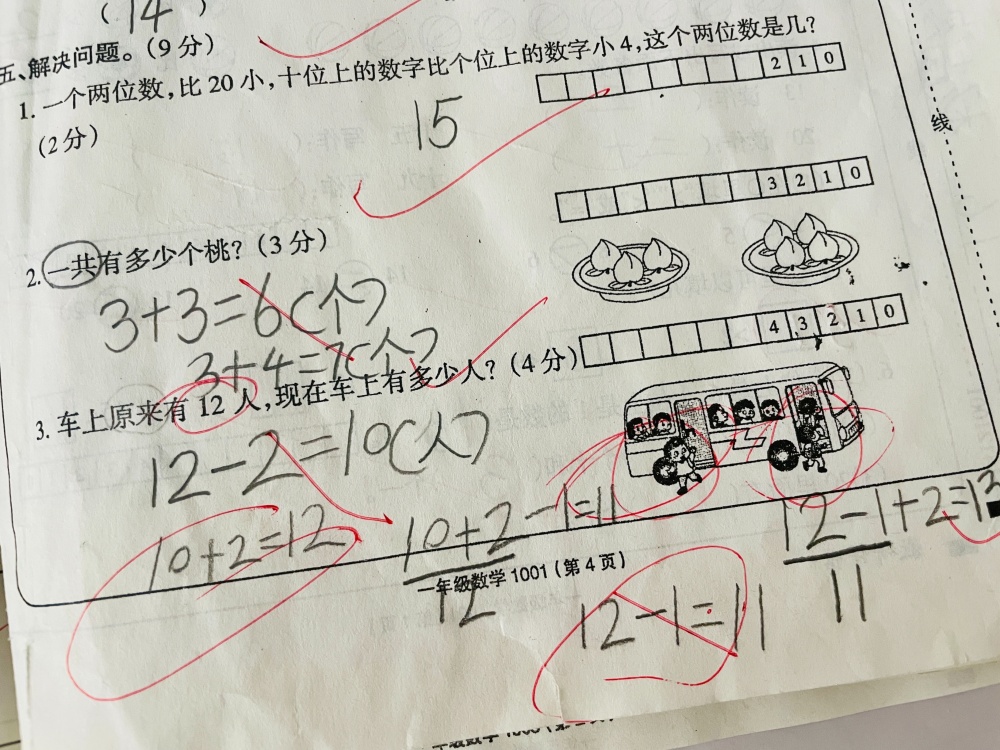 ( 14 )
五、解决问题。(9 分)
1. 一个两位数,比 20 小,十位上的数字比个位上的数字小 4,这个两位数是几?
(2 分)
2 1 0
15
3 2 1 0
2. 一共有多少个桃? (3 分)
3+3=6(个)
3+4=7(个)
4 3 2 1 0
3. 车上原来有 12 人,现在车上有多少人? (4 分)
12-2=10(人)
10+2=12
10+2-1=11
12
12-1+2=13
11
一年级数学 1001 (第 4 页)
12-1=11
线